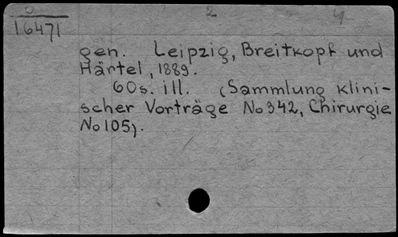 16471
gen. Leipzig, Breitkopf und
Härtel, 1889.
60s. ill. (Sammlung klini-
scher Vorträge No 342, Chirurgie
No 105).